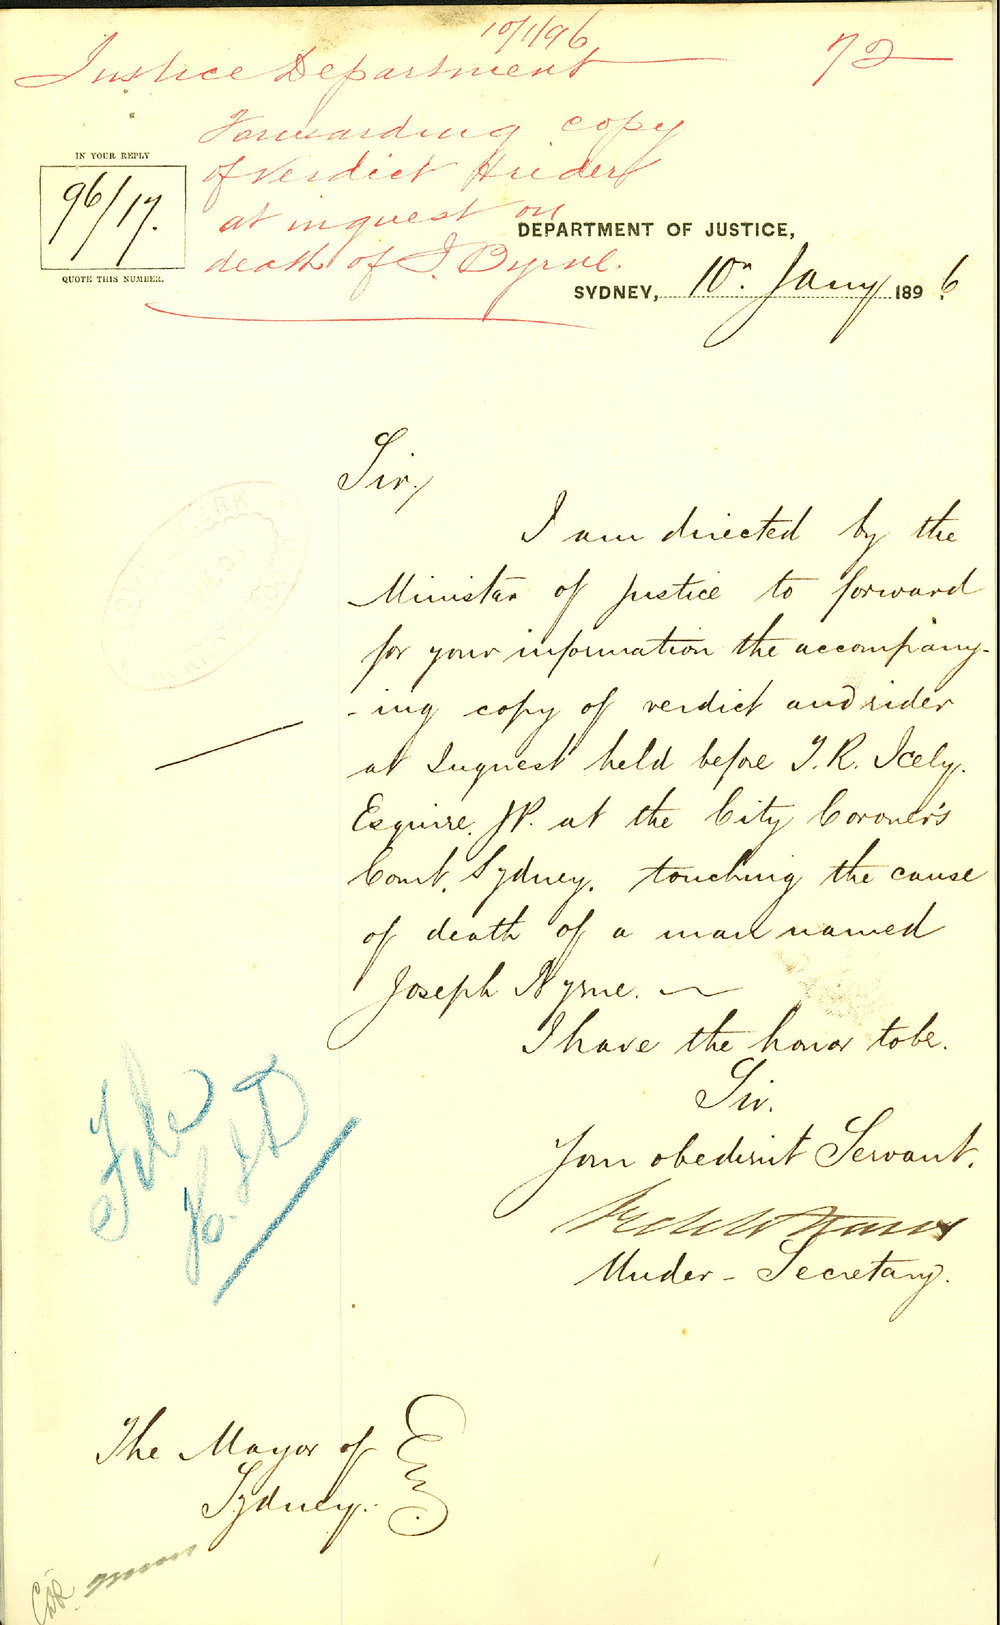 10/1/96
Justice Department 72
Forwarding copy
of verdict & rider
at inquest on
death of J. Byrne.
IN YOUR REPLY
96/17.
QUOTE THIS NUMBER.
DEPARTMENT OF JUSTICE,
SYDNEY, 10th Jany 1896.
Sir,
I am directed by the
Minister of Justice to forward
for your information the accompany-
-ing copy of verdict and rider
at Inquest held before T. R. Icely.
Esquire. J.P. at the City Coroner's
Court, Sydney. touching the cause
of death of a man named
Joseph Byrne.
I have the honor to be.
Sir.
Your obedient Servant.
Under-Secretary.
File
The Mayor of
Sydney.